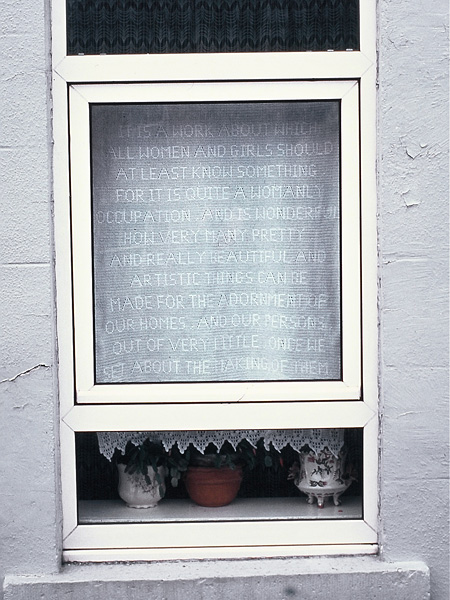 IT IS A WORK ABOUT WHICH
ALL WOMEN AND GIRLS SHOULD
AT LEAST KNOW SOMETHING
FOR IT IS QUITE A WOMANLY
OCCUPATION. AND IS WONDERFUL
HOW VERY MANY PRETTY
AND REALLY BEAUTIFUL AND
ARTISTIC THINGS CAN BE
MADE FOR THE ADORNMENT OF
OUR HOMES. AND OUR PERSONS
OUT OF VERY LITTLE. ONCE WE
SET ABOUT THE MAKING OF THEM